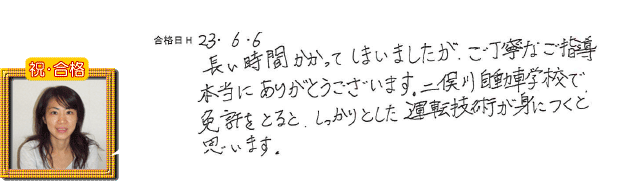 合格日 H 23・6・6
長い時間かかってしまいましたが、ご丁寧なご指導
本当にありがとうございます。二俣川自動車学校で
免許をとると、しっかりとした運転技術が身につくと
思います。
祝・合格